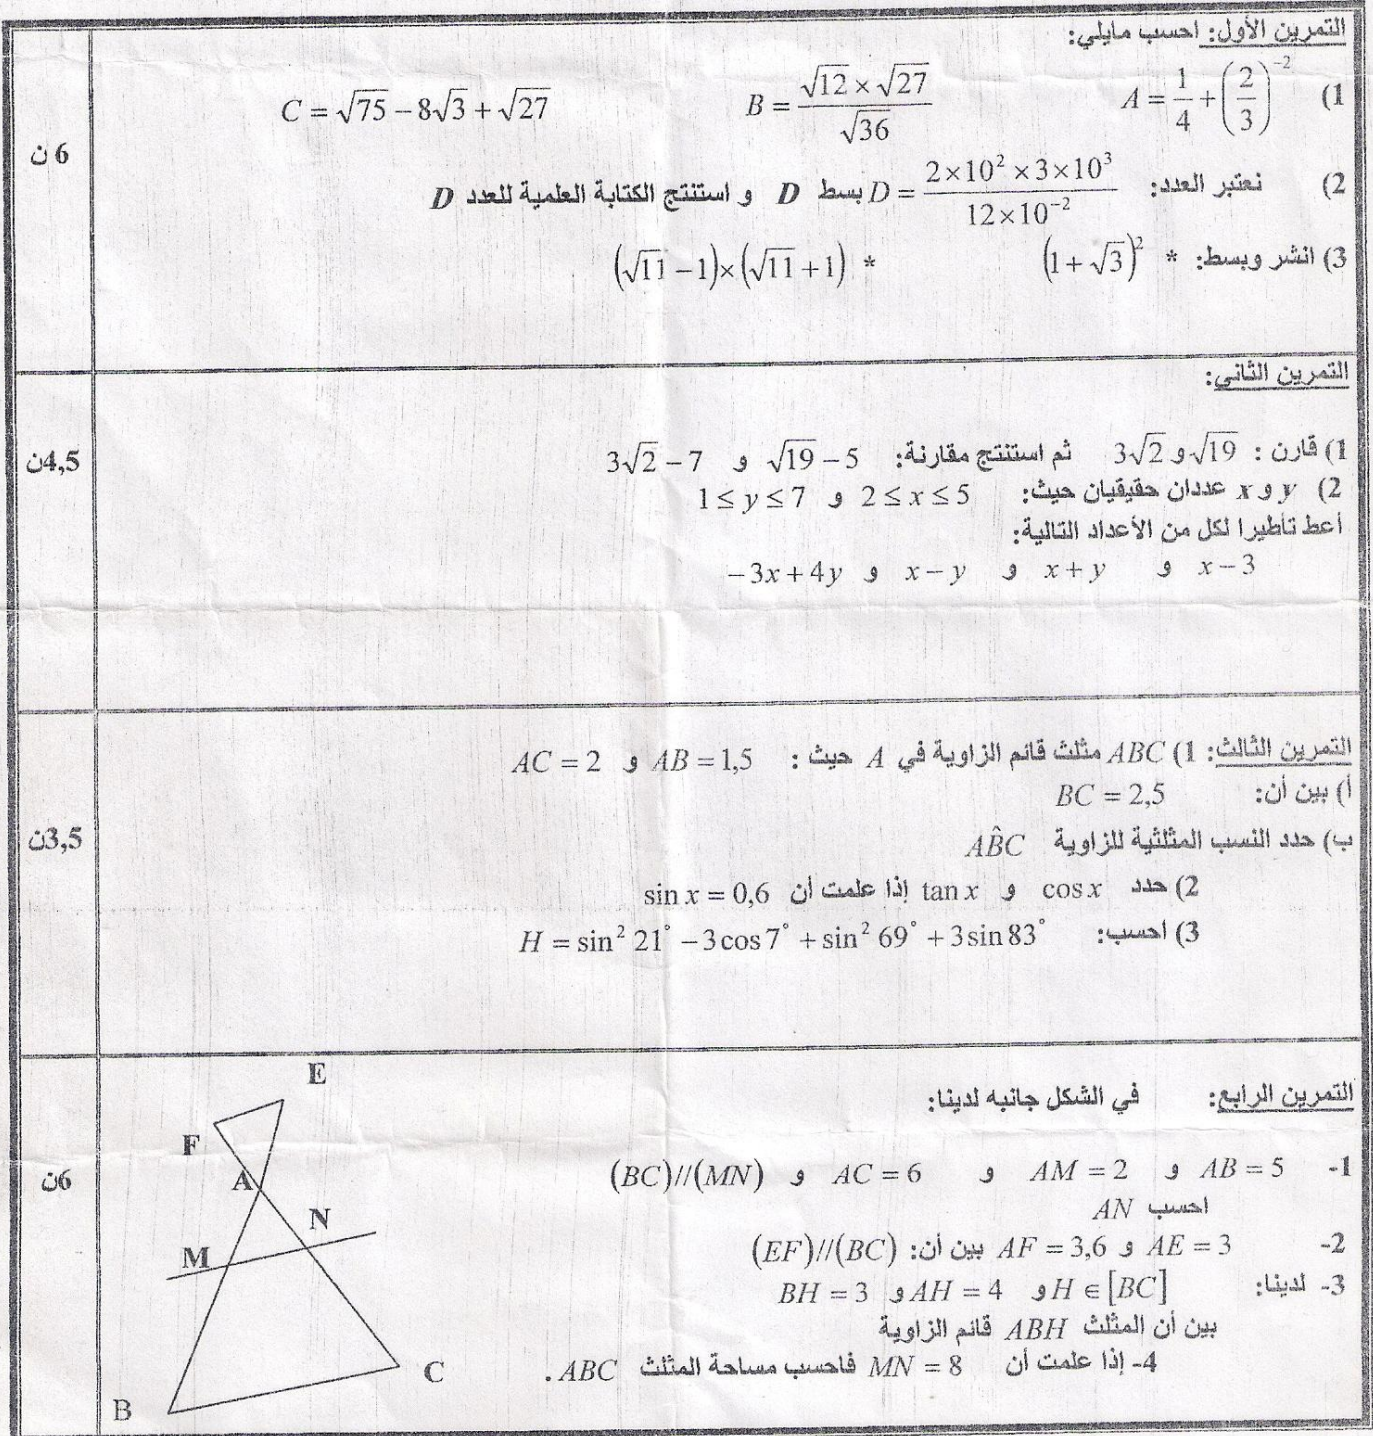 التمرين الأول: احسب مايلي:
1) A = 1/4 + (2/3)^{-2}    B = (√12 × √27)/√36    C = √75 − 8√3 + √27
6 ن
2) نعتبر العدد: D = (2×10² × 3×10³)/(12×10^{-2}) بسط D و استنتج الكتابة العلمية للعدد D
3) انشر وبسط: * (1+√3)²    * (√11 −1)×(√11 +1)
التمرين الثاني:
4,5ن
1) قارن : √19 و 3√2 ثم استنتج مقارنة: √19 − 5 و 3√2 − 7
2) y و x عددان حقيقيان حيث: 2 ≤ x ≤ 5 و 1 ≤ y ≤ 7
أعط تأطيرا لكل من الأعداد التالية:
x − 3 و x + y و x − y و −3x + 4y
التمرين الثالث: 1) ABC مثلث قائم الزاوية في A حيث : AB = 1,5 و AC = 2
أ) بين أن: BC = 2,5
3,5ن
ب) حدد النسب المثلثية للزاوية AB̂C
2) حدد cos x و tan x إذا علمت أن sin x = 0,6
3) احسب: H = sin² 21° − 3cos 7° + sin² 69° + 3sin 83°
التمرين الرابع: في الشكل جانبه لدينا:
6ن
1- AB = 5 و AM = 2 و AC = 6 و (BC)//(MN)
احسب AN
2- AE = 3 و AF = 3,6 بين أن: (EF)//(BC)
3- لدينا: H ∈ [BC] و AH = 4 و BH = 3
بين أن المثلث ABH قائم الزاوية
4- إذا علمت أن MN = 8 فاحسب مساحة المثلث ABC .
E
F
A
N
M
C
B